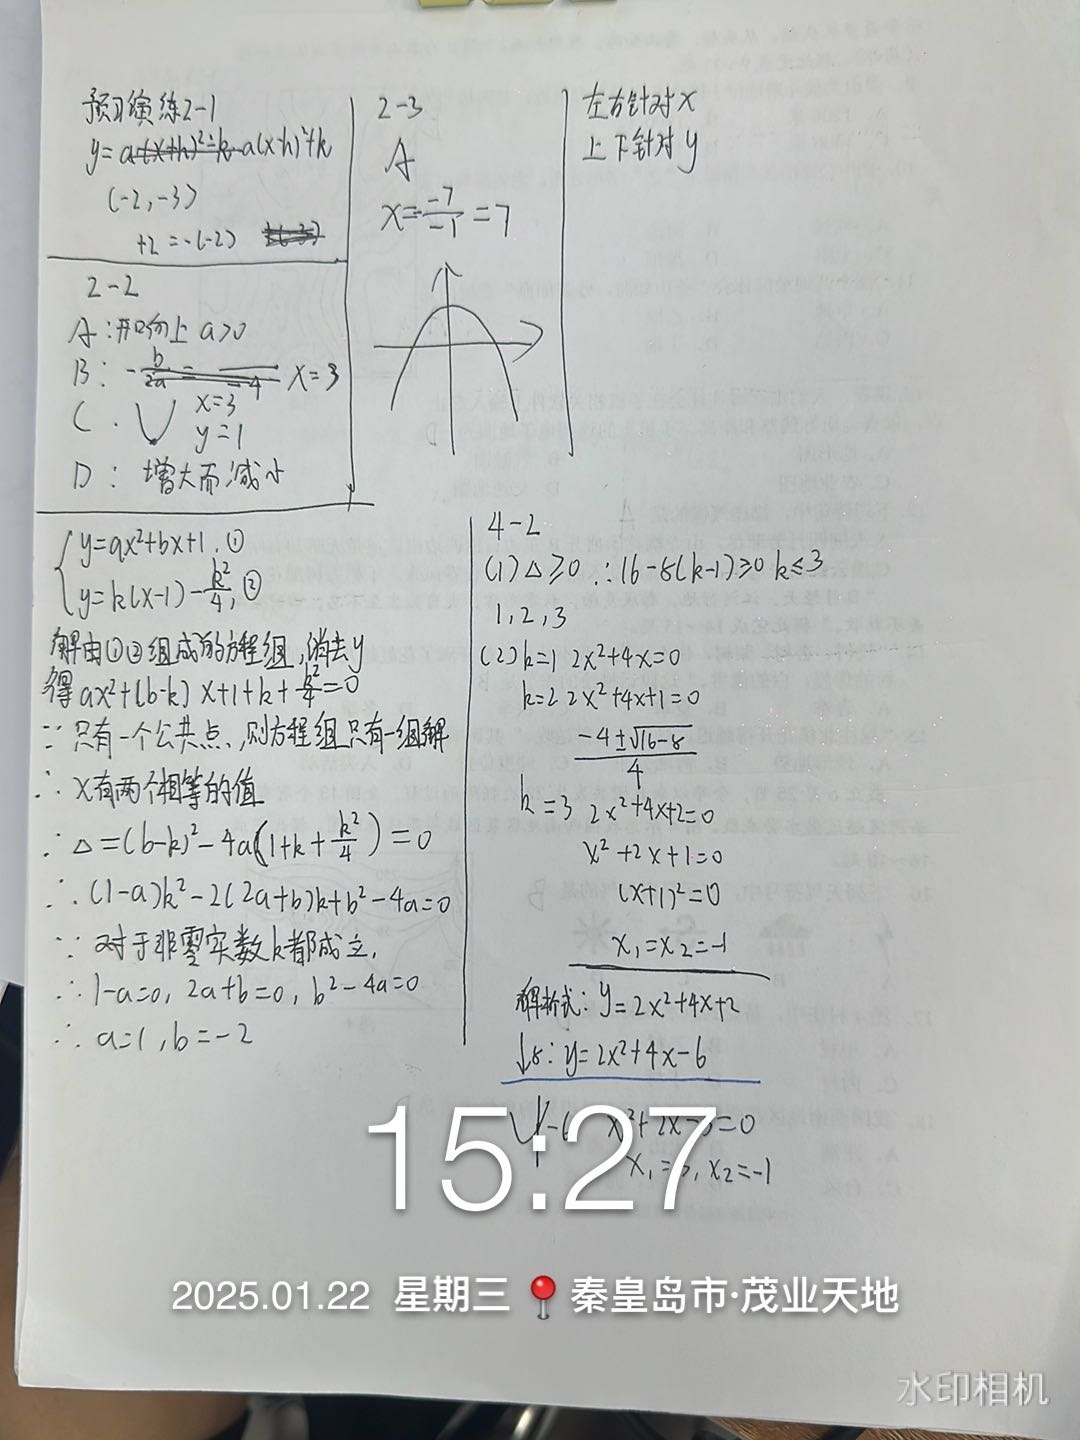 预习演练2-1
y=a(x-h)²+k
(-2,-3)
+2=-(-2)
2-2
A:开口向上 a>0
B: -b/2a = x=3
C. x=3
y=1
D: 增大而减小
2-3
A
x=-7/-1=7
左右针对x
上下针对y
y=ax²+bx+1.①
y=k(x-1)-k²/4,②
解由①②组成的方程组,消去y
得ax²+(b-k)x+1+k+k²/4=0
∵只有一个公共点,则方程组只有一组解
∴x有两个相等的值
∴△=(b-k)²-4a(1+k+k²/4)=0
∴(1-a)k²-2(2a+b)k+b²-4a=0
∵对于非零实数k都成立,
∴1-a=0, 2a+b=0, b²-4a=0
∴a=1,b=-2
4-2
(1)△≥0∴16-8(k-1)≥0 k≤3
1,2,3
(2)k=1 2x²+4x=0
k=2 2x²+4x+1=0
-4±√16-8/4
k=3 2x²+4x+2=0
x²+2x+1=0
(x+1)²=0
x₁=x₂=-1
解析式:y=2x²+4x+2
↓8:y=2x²+4x-6
-6 x²+2x-3=0
x₂=-1
15:27
2025.01.22 星期三 秦皇岛市·茂业天地
水印相机